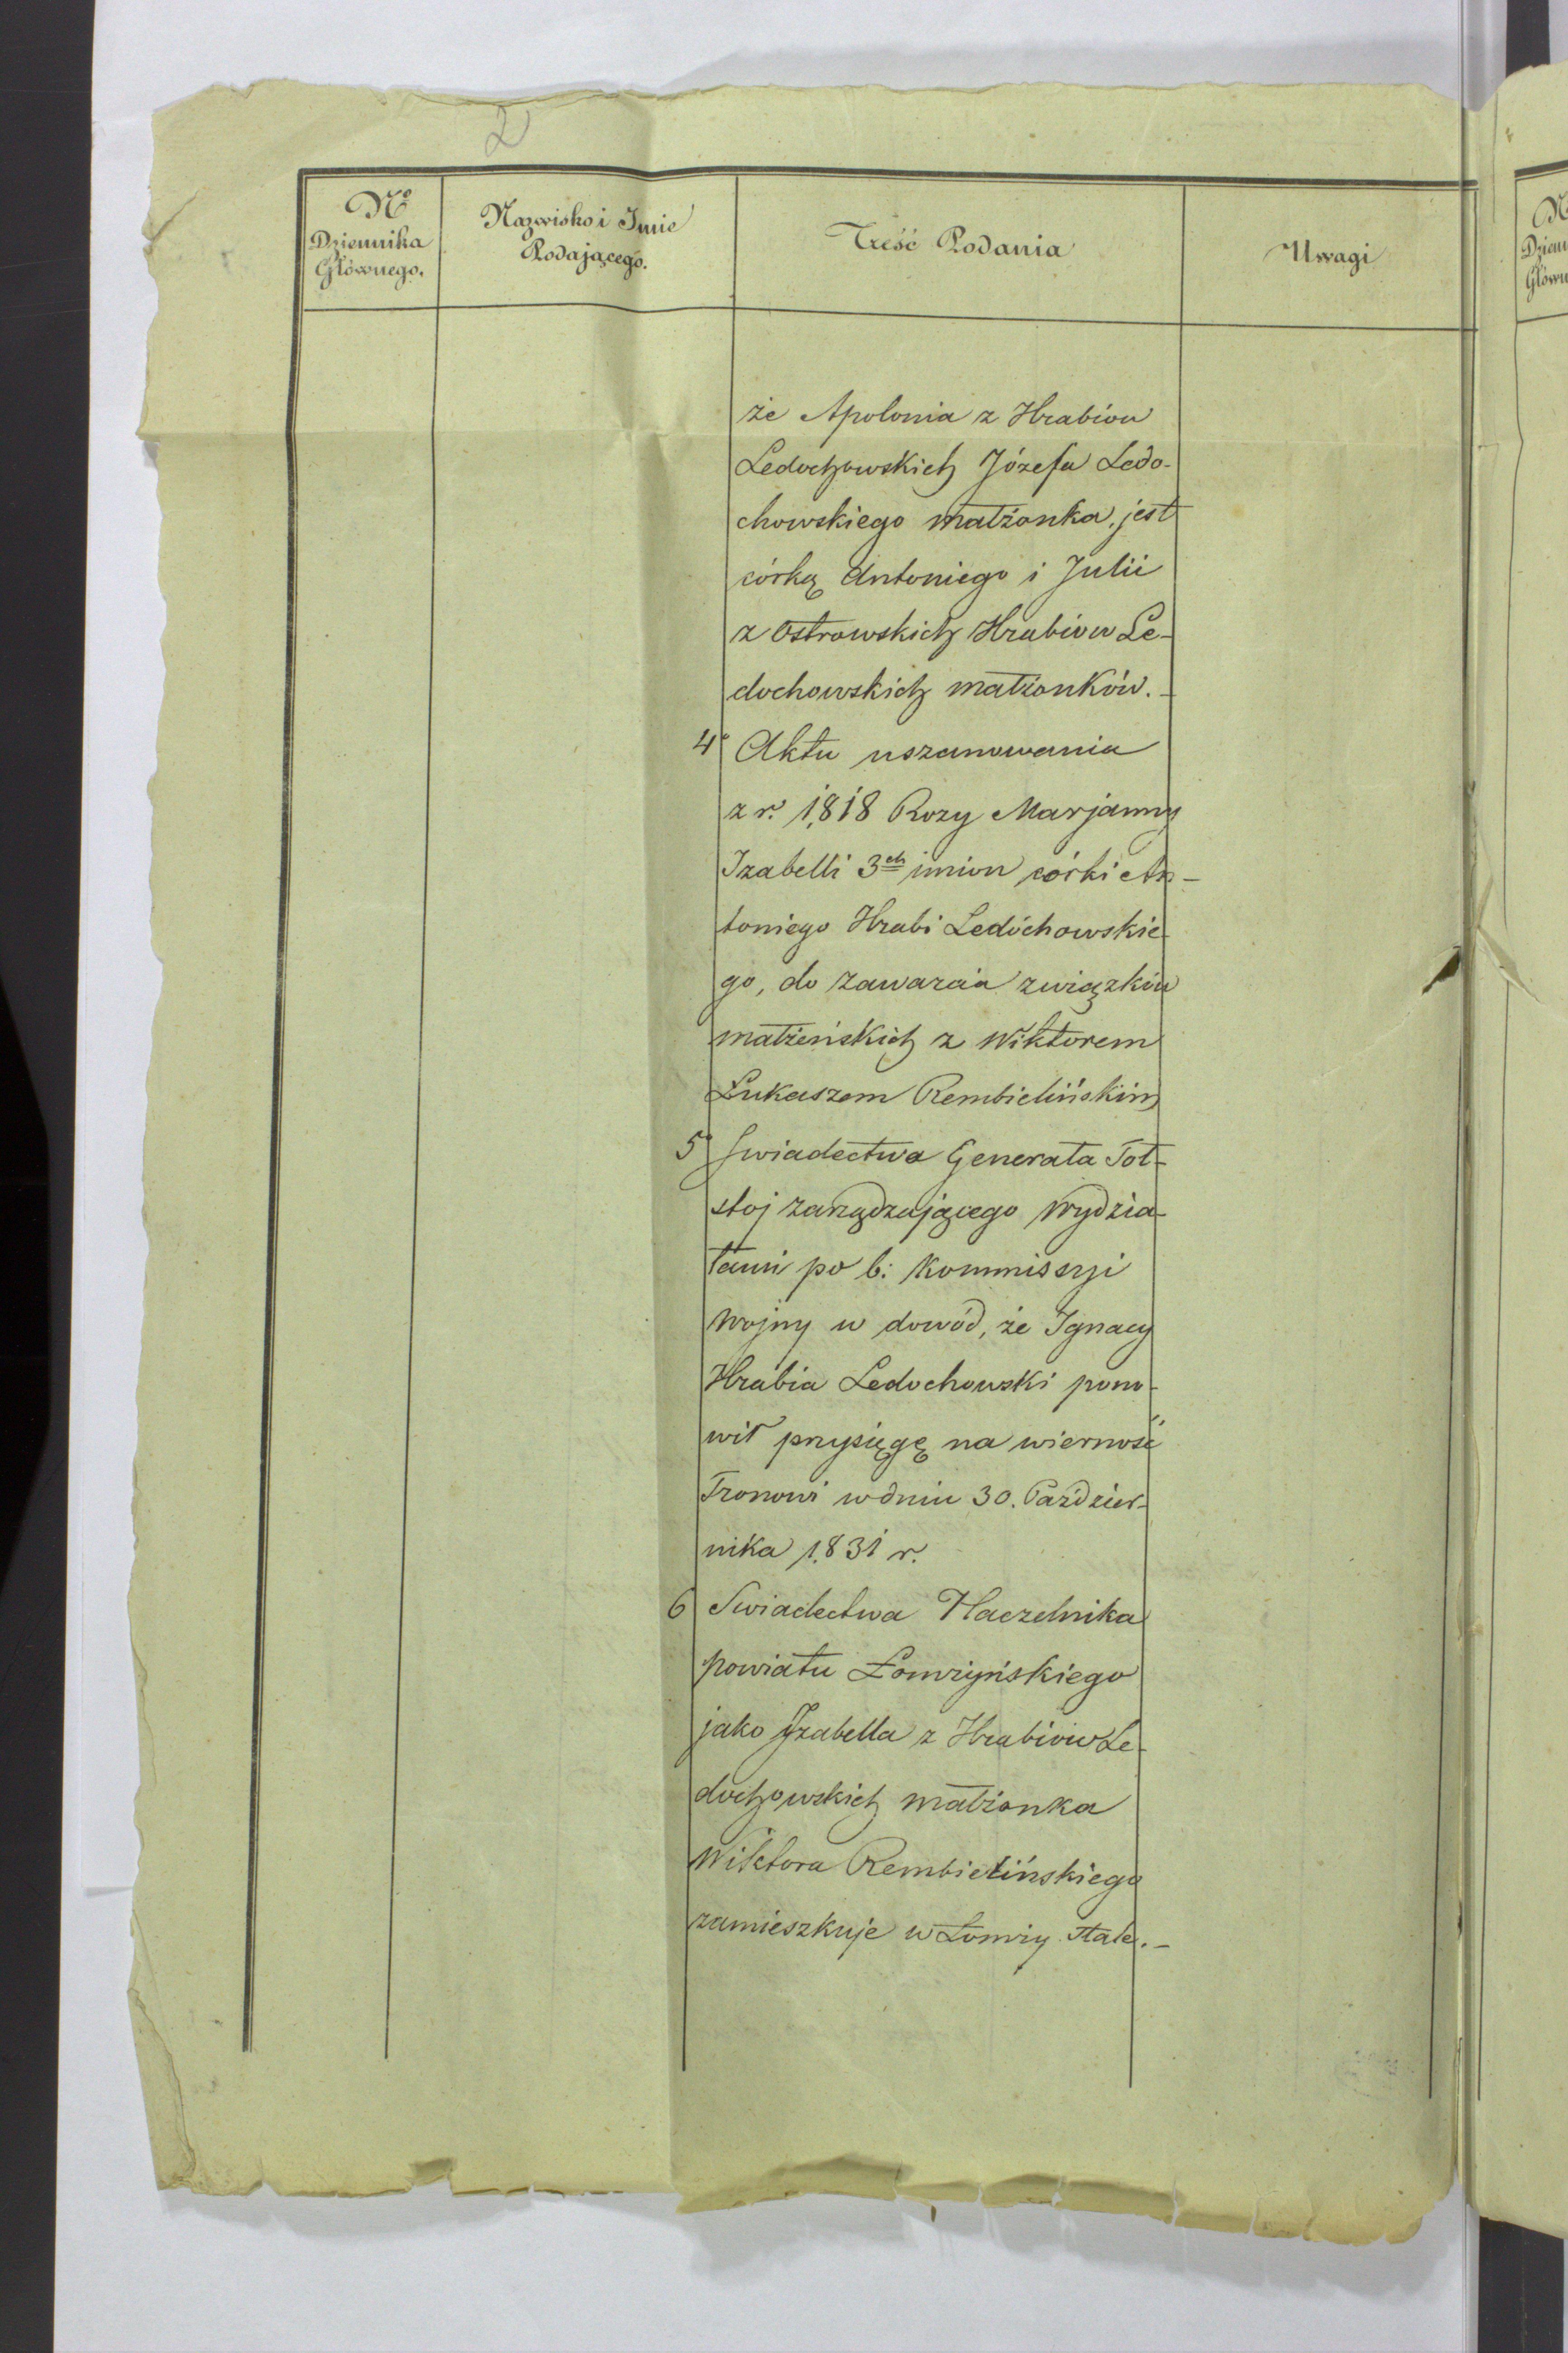 2
No
Dziennika
Głównego.
Nazwisko i Imie
Podającego.
Treść Podania
Uwagi
że Apolonia z Hrabiow
Ledochowskich Józefa Ledo-
chowskiego małżonka, jest
córką Antoniego i Julii
z Ostrowskich Hrabiow Le-
dochowskich małżonków.-
4o Aktu uszanowania
z r. 1818 Rozy Marjanny
Izabelli 3ch imion córki An-
toniego Hrabi Ledóchowskie-
go, do zawarcia związków
małżeńskich z Wiktorem
Łukaszem Rembielińskim
5o Swiadectwa Generała Toł-
stoj zarządzającego Wydzia-
łami po b: Kommissyi
Wojny w dowód, że Ignacy
Hrabia Ledochowski pono-
wił przysięgę na wierność
Tronowi w dniu 30. Paździer-
nika 1831 r.
6 Swiadectwa Naczelnika
powiatu Łomżyńskiego
jako Izabella z Hrabiow Le-
dochowskich małżonka
Wiktora Rembielińskiego
zamieszkuje w Łomży stale.-
N
Dzien
Główn